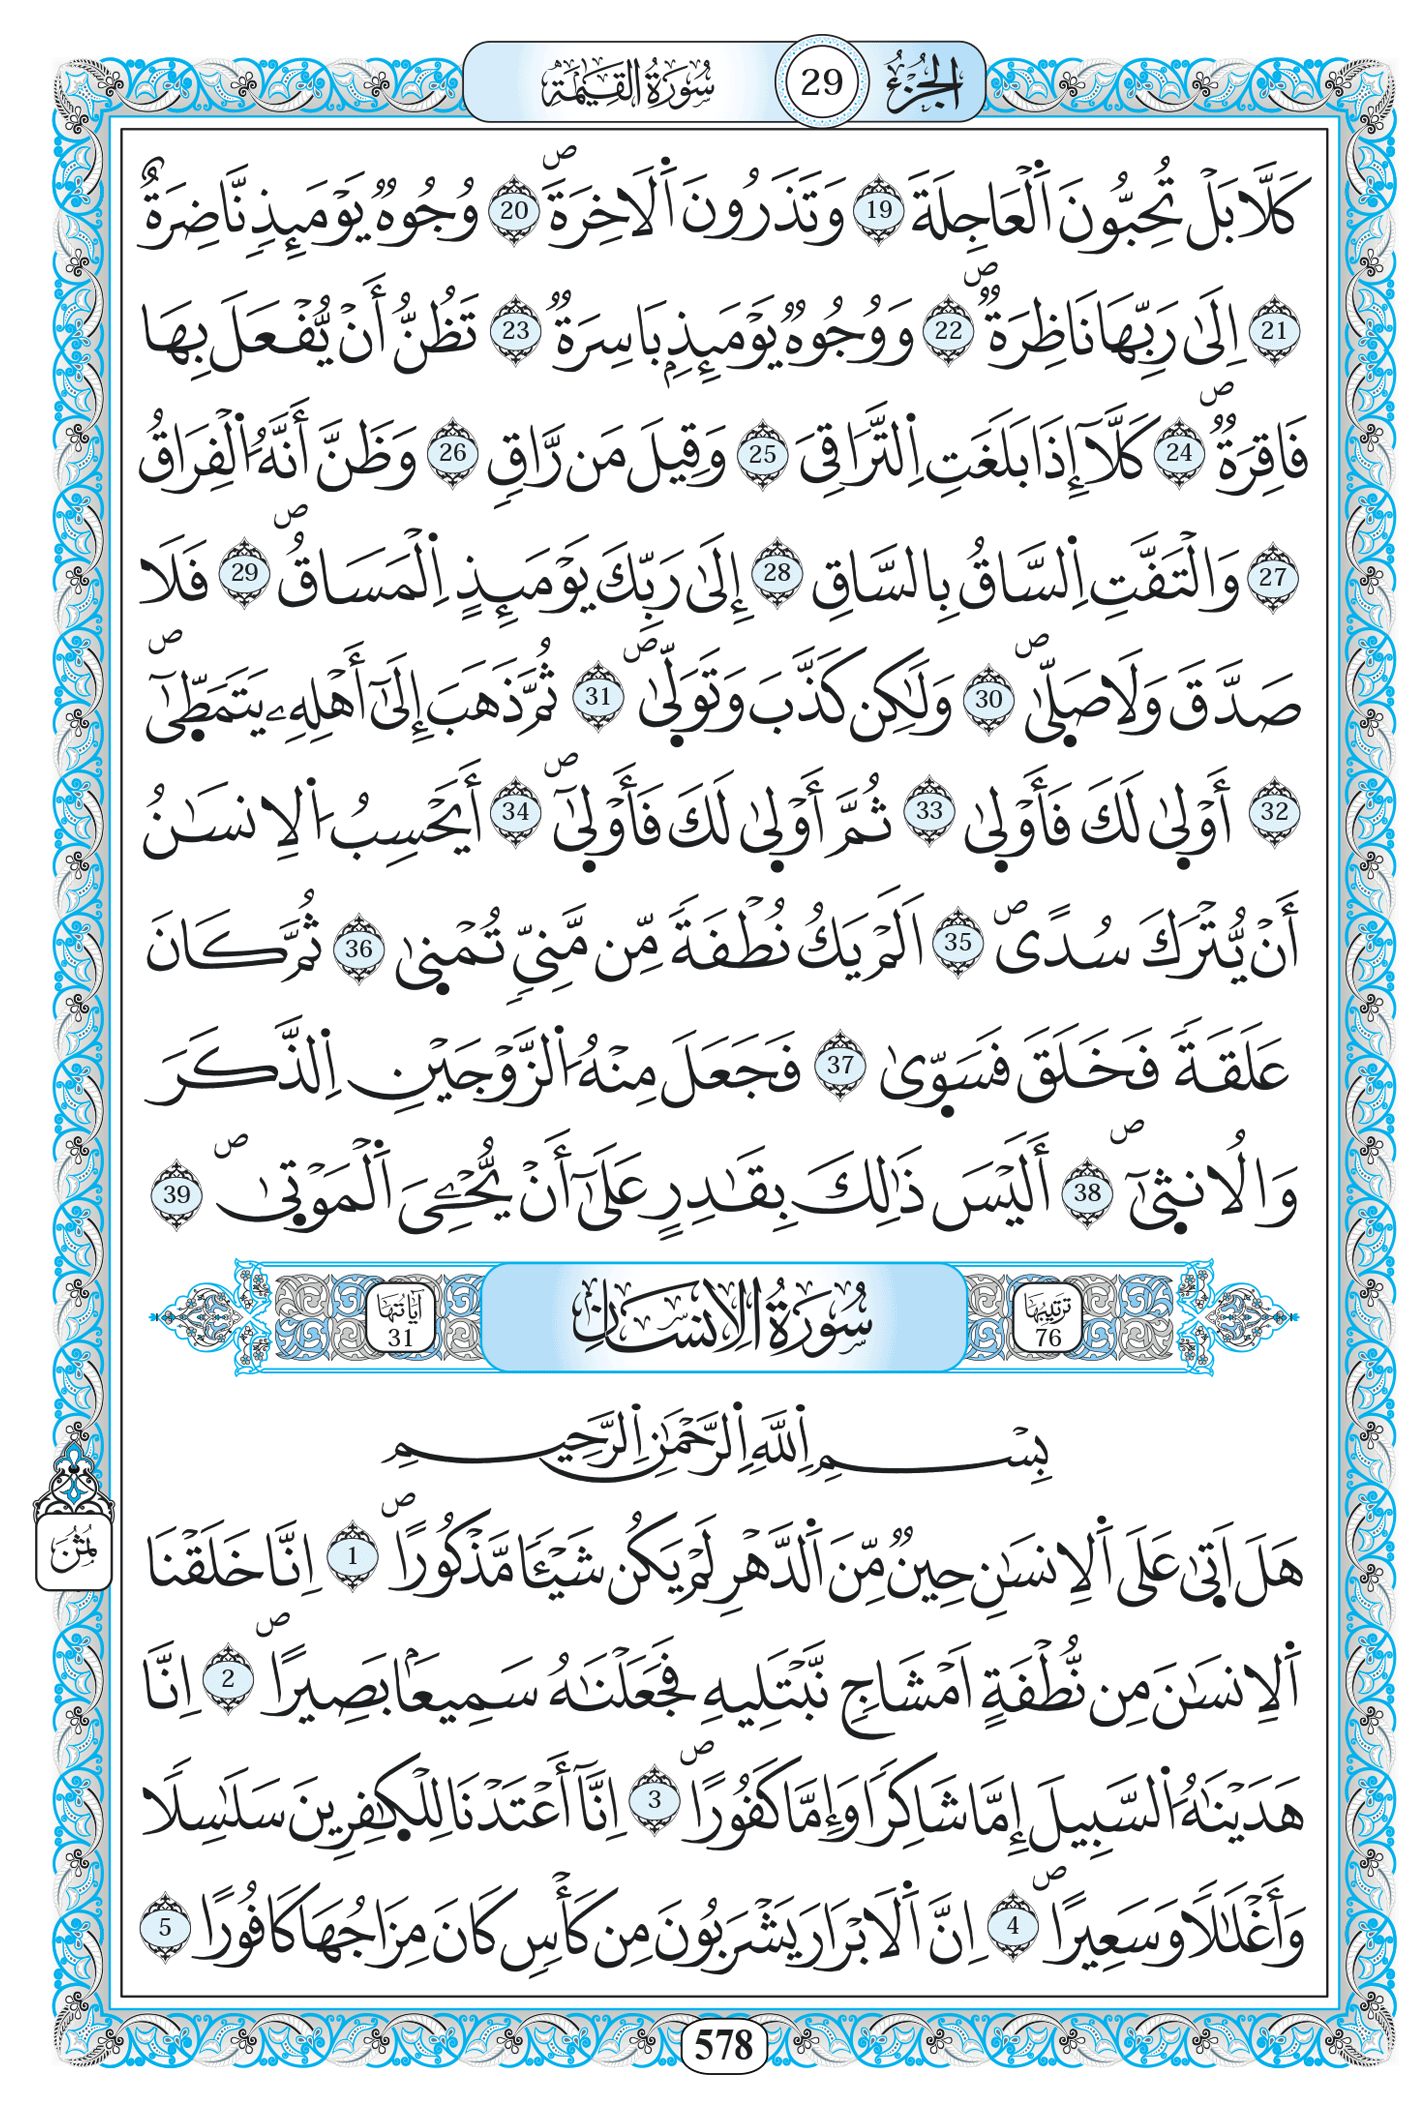 الجزء 29 سورة القيمة
كَلَّا بَلْ تُحِبُّونَ اَ۬لْعَاجِلَةَ 19 وَتَذَرُونَ اَ۬لَاخِرَةَۖ 20 وُجُوهٞ يَوْمَئِذٖ نَّاضِرَةٌ
21 اِلَىٰ رَبِّهَا نَاظِرَةٞۖ 22 وَوُجُوهٞ يَوْمَئِذِۢ بَاسِرَةٞ 23 تَظُنُّ أَنْ يُّفْعَلَ بِهَا
فَاقِرَةٞۖ 24 كَلَّآ إِذَا بَلَغَتِ اِ۬لتَّرَاقِيَ 25 وَقِيلَ مَن رَّاقٖ 26 وَظَنَّ أَنَّهُ اُ۬لْفِرَاقُ
27 وَالْتَفَّتِ اِ۬لسَّاقُ بِالسَّاقِ 28 إِلَىٰ رَبِّكَ يَوْمَئِذٍ اِ۬لْمَسَاقُۖ 29 فَلَا
صَدَّقَ وَلَا صَلّ۪ىٰۖ 30 وَلَٰكِن كَذَّبَ وَتَوَلّ۪ىٰۖ 31 ثُمَّ ذَهَبَ إِلَىٰٓ أَهْلِهِۦ يَتَمَطّ۪ىٰٓۖ
32 أَوْل۪ىٰ لَكَ فَأَوْل۪ىٰ 33 ثُمَّ أَوْل۪ىٰ لَكَ فَأَوْل۪ىٰٓۖ 34 أَيَحْسِبُ اُ۬لِانسَٰنُ
أَنْ يُّتْرَكَ سُدًىۖ 35 اَلَمْ يَكُ نُطْفَةٗ مِّن مَّنِيّٖ تُمْن۪ىٰ 36 ثُمَّ كَانَ
عَلَقَةٗ فَخَلَقَ فَسَوّ۪ىٰ 37 فَجَعَلَ مِنْهُ اُ۬لزَّوْجَيْنِ اِ۬لذَّكَرَ
وَالُانث۪ىٰٓۖ 38 أَلَيْسَ ذَٰلِكَ بِقَٰدِرٍ عَلَىٰٓ أَنْ يُّحْـِۧيَ اَ۬لْمَوْت۪ىٰۖ 39
ترتيبها 76 سورة الانسان آياتها 31
بِسْمِ اِ۬للَّهِ اِ۬لرَّحْمَٰنِ اِ۬لرَّحِيمِ
هَلَ اَت۪ىٰ عَلَى اَ۬لِانسَٰنِ حِينٞ مِّنَ اَ۬لدَّهْرِ لَمْ يَكُن شَيْـٔٗا مَّذْكُورًاۖ 1 اِنَّا خَلَقْنَا
ثمن
اَ۬لِانسَٰنَ مِن نُّطْفَةٍ اَمْشَاجٖ نَّبْتَلِيهِ فَجَعَلْنَٰهُ سَمِيعَۢا بَصِيرًاۖ 2 اِنَّا
هَدَيْنَٰهُ اُ۬لسَّبِيلَ إِمَّا شَاكِرٗا وَإِمَّا كَفُورًاۖ 3 اِنَّآ أَعْتَدْنَا لِلْكٰ۪فِرِينَ سَلَٰسِلٗا
وَأَغْلَٰلٗا وَسَعِيرًاۖ 4 اِنَّ اَ۬لَابْرَارَ يَشْرَبُونَ مِن كَأْسٖ كَانَ مِزَاجُهَا كَافُورًا 5
578